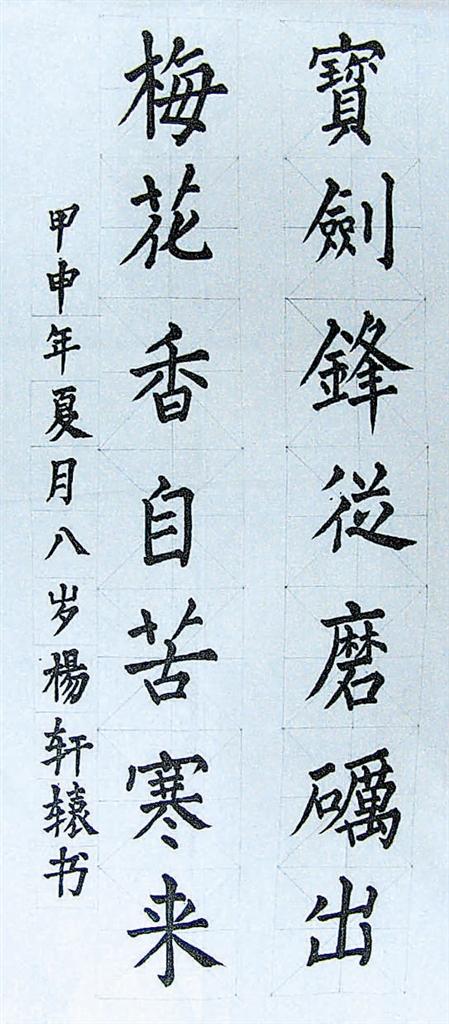 寶劍鋒從磨礪出
梅花香自苦寒来
甲申年夏月八岁楊轩辕书